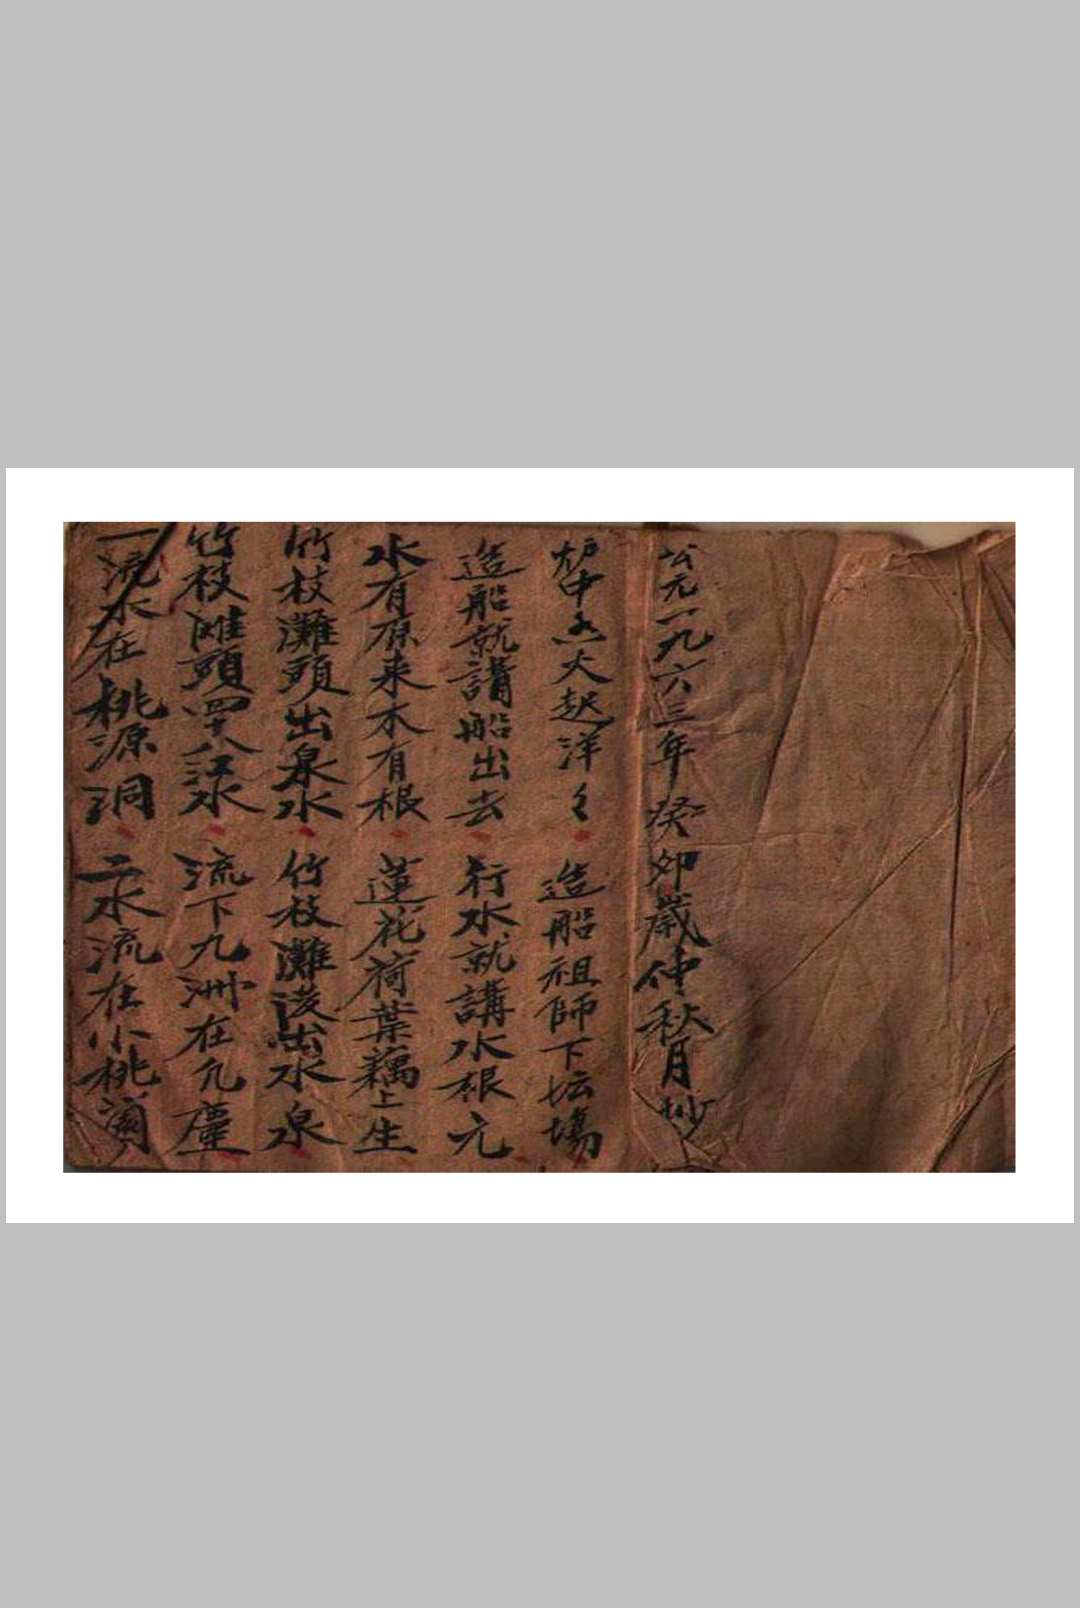 公元一九六三年癸卯歲仲秋月抄
炉中火起洋々 造船祖師下坛場
造船就講船出去 行水就講水根元
水有原来木有根 蓮花荷葉藕上生
竹枝灘頭出泉水 竹枝灘出水泉
竹枝滩頭四十八江水 流下九洲在凡塵
一流水在桃源洞 二水流在小桃